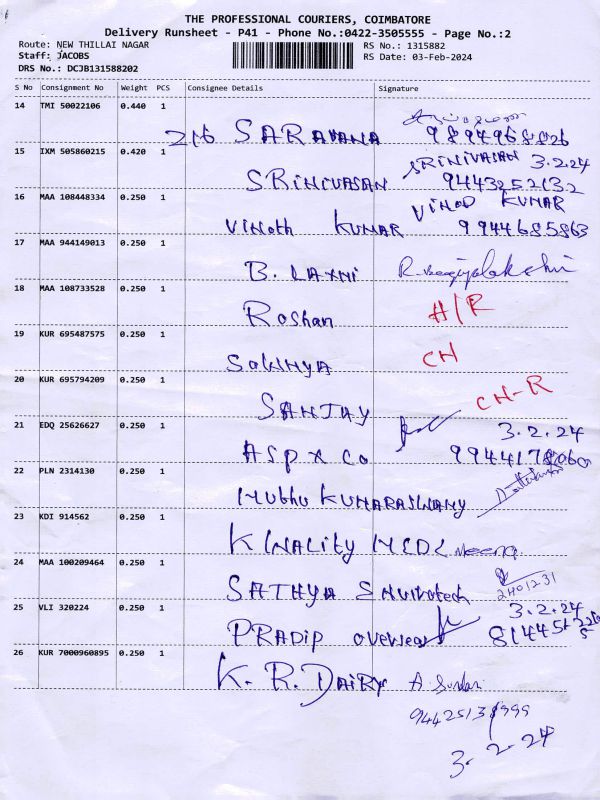 THE PROFESSIONAL COURIERS, COIMBATORE
Delivery Runsheet - P41 - Phone No.:0422-3505555 - Page No.:2
Route: NEW THILLAI NAGAR
RS No.: 1315882
Staff: JACOBS
RS Date: 03-Feb-2024
DRS No.: DCJB131588202
S No Consignment No Weight PCS Consignee Details Signature
14 TMI 50022106 0.440 1
216 SARAVANA 9894968826
15 IXM 505860215 0.420 1 SRINIVASAN 3.2.24
SRINIVASAN 9443252132
16 MAA 108448334 0.250 1 VINOD KUMAR
VINOTH KUMAR 9944685863
17 MAA 944149013 0.250 1
B. LAXMI
18 MAA 108733528 0.250 1
Roshan H/R
19 KUR 695487575 0.250 1
SOWMYA CH
20 KUR 695794209 0.250 1
SANJAY CH-R
21 EDQ 25626627 0.250 1 3.2.24
ASP X CO
22 PLN 2314130 0.250 1
MUTHU KUMARASWAMY
23 KDI 914562 0.250 1
KWALITY MEDL Meena
24 MAA 100209464 0.250 1
SATHYA 2401231
25 VLI 320224 0.250 1 3.2.24
PRADIP overseas
26 KUR 7000960895 0.250 1
K. R. DAIRY
3.2.24